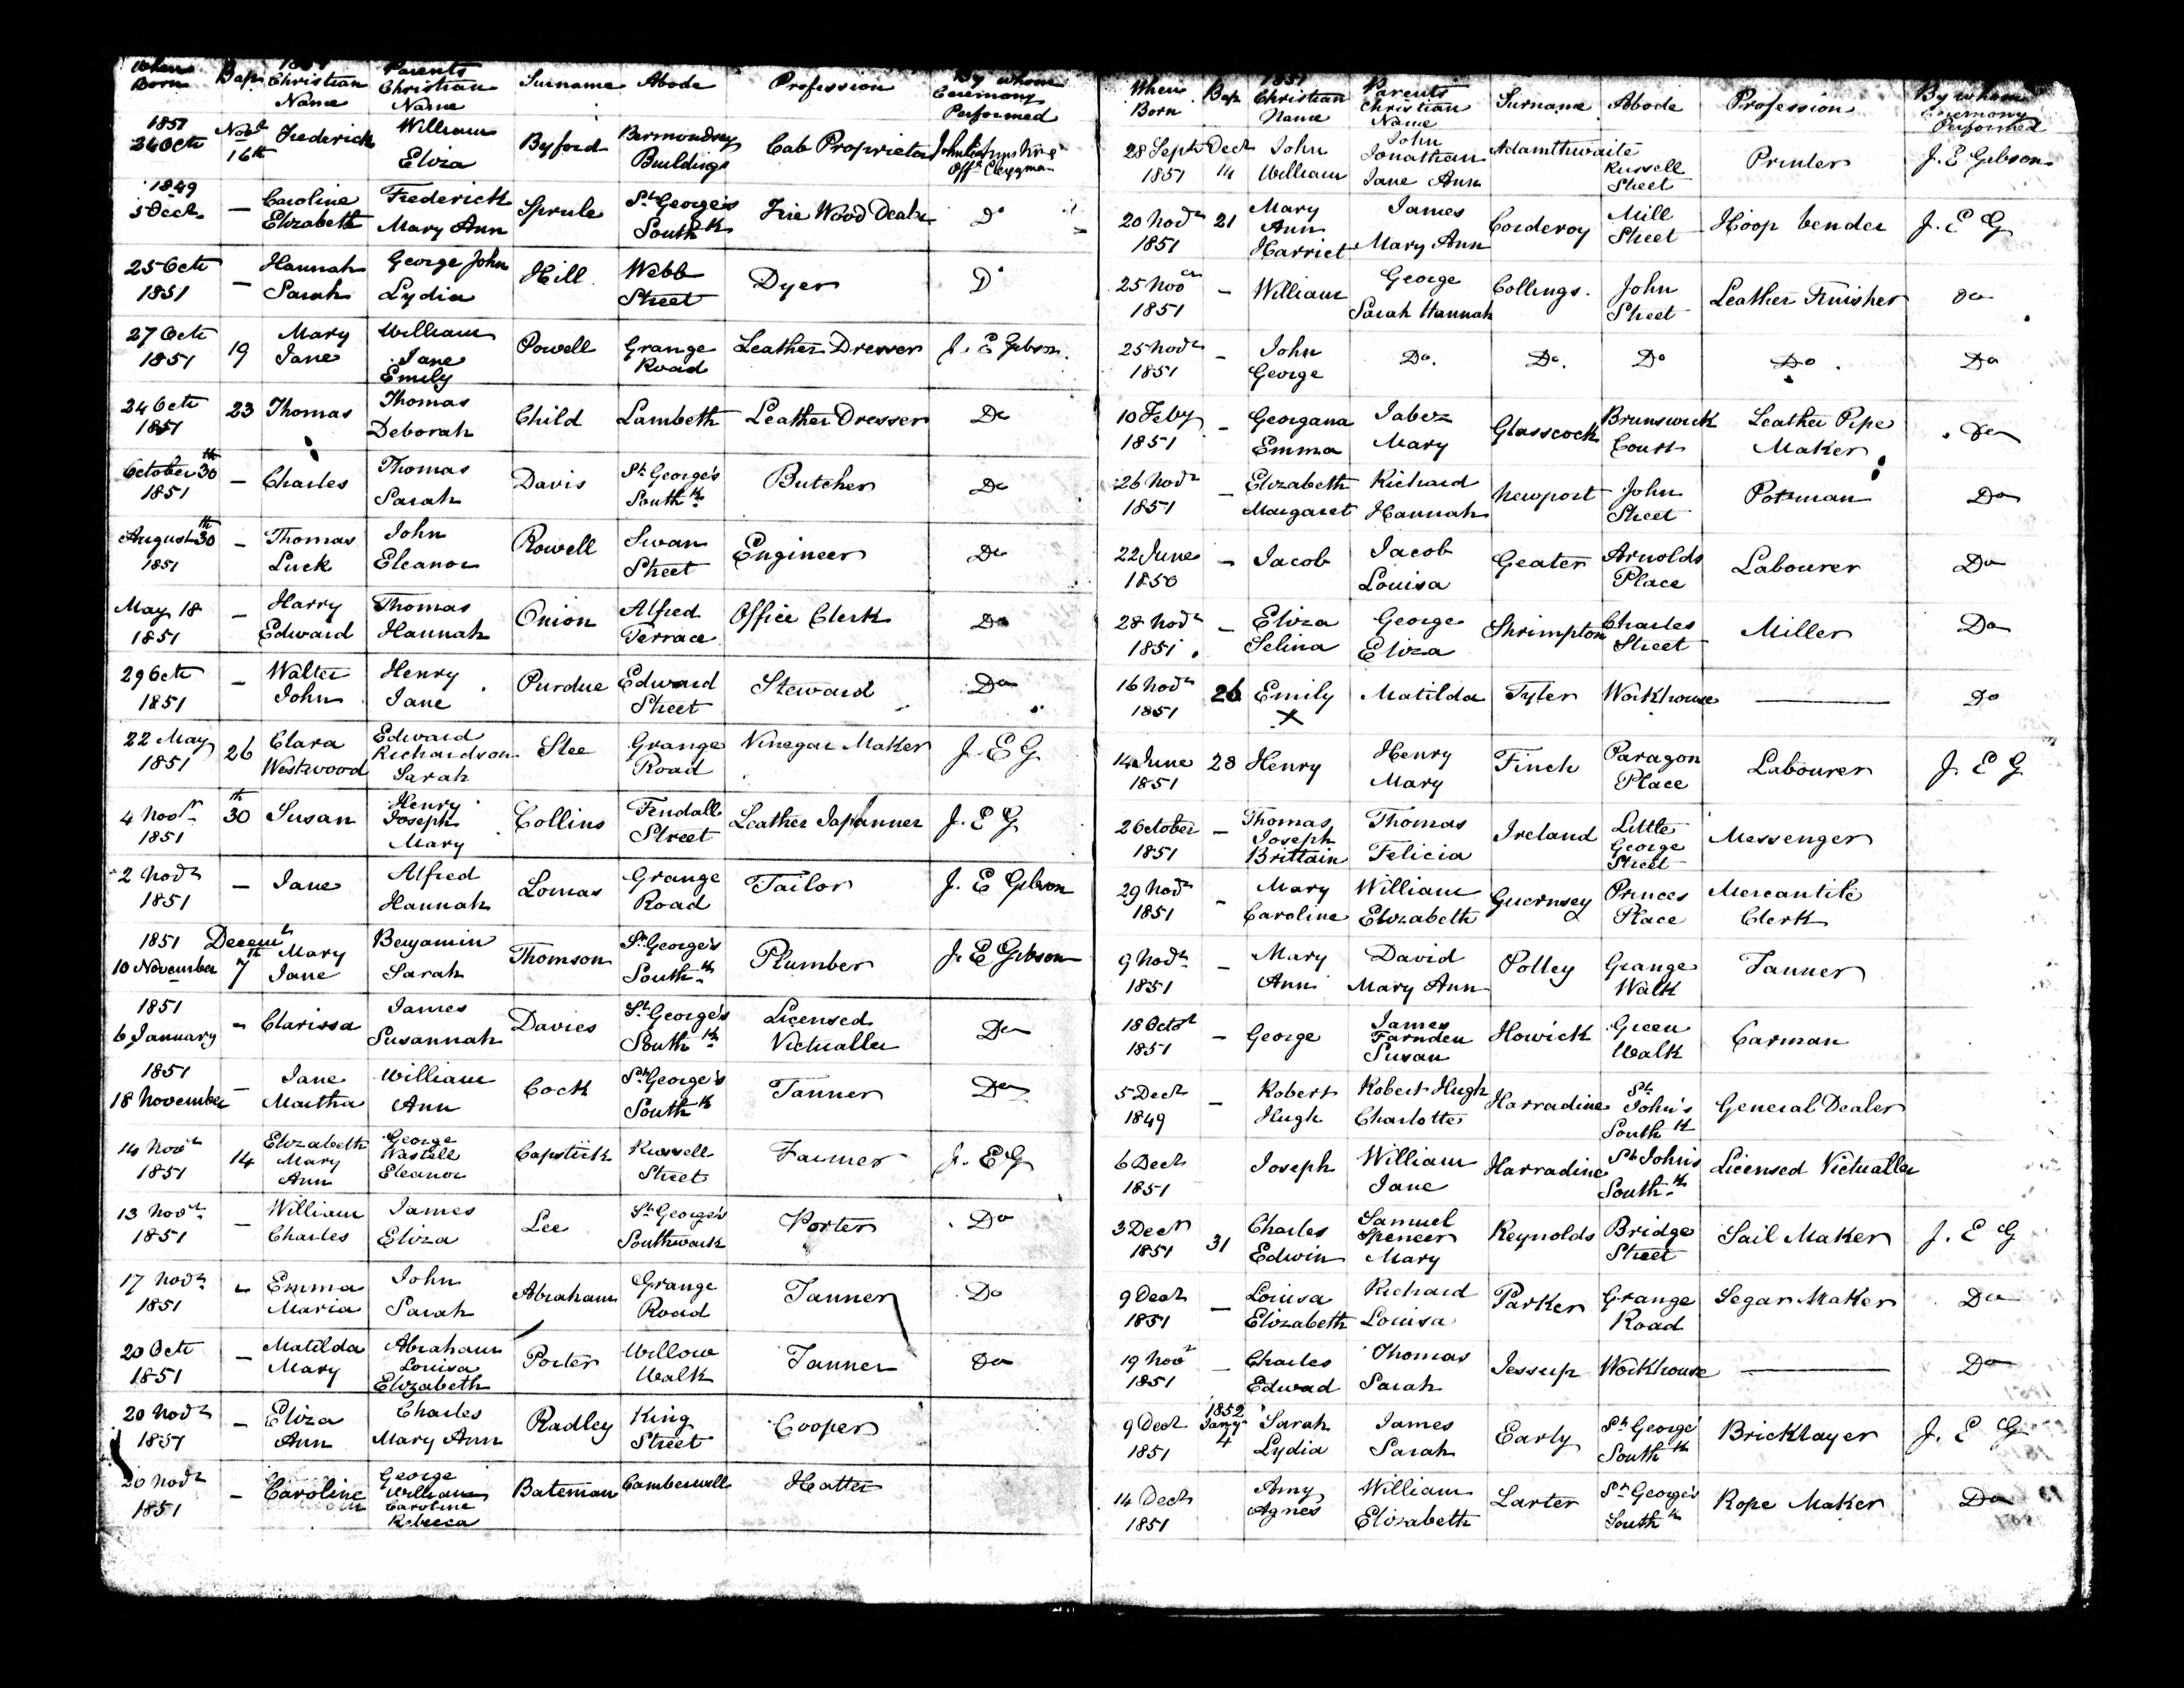 When Born Bap. 1851 Christian Name Parents Christian Name Surname Abode Profession By whom Ceremony Performed
1851 24 Octr Novr 16th Frederick William Eliza Byford Bermondsey Buildings Cab Proprietor Offg Clergyman
1849 5 Decr — Caroline Elizabeth Frederick Mary Ann Sprule St George's Southk Fire Wood Dealer Do
25 Octr 1851 — Hannah Sarah George John Lydia Hill Webb Street Dyer Do
27 Octr 1851 19 Mary Jane William Jane Emily Powell Grange Road Leather Dresser J. E Gibson
24 Octr 1851 23 Thomas Thomas Deborah Child Lambeth Leather Dresser Do
October 30th 1851 — Charles Thomas Sarah Davis St George's Southk Butcher Do
August 30th 1851 — Thomas Luck John Eleanor Rowell Swan Street Engineer Do
May 18 1851 — Harry Edward Thomas Hannah Onion Alfred Terrace Office Clerk Do
29 Octr 1851 — Walter John Henry Jane Purdue Edward Street Steward Do
22 May 1851 26 Clara Westwood Edward Richardson Sarah Slee Grange Road Vinegar Maker J. E G
4 Novr 1851 30th Susan Henry Joseph Mary Collins Fendall Street Leather Japanner J. E G
2 Novr 1851 — Jane Alfred Hannah Lomas Grange Road Tailor J. E Gibson
1851 10 November Decemr 7th Mary Jane Benjamin Sarah Thomson St George's Southk Plumber J. E Gibson
1851 6 January — Clarissa James Susannah Davies St George's Southk Licensed Victualler Do
1851 18 November — Jane Martha William Ann Cock St George's Southk Tanner Do
14 Novr 1851 14 Elizabeth Mary Ann George Wastell Eleanor Capstick Russell Street Farmer J. E G
13 Novr 1851 — William Charles James Eliza Lee St George's Southwark Porter Do
17 Novr 1851 — Emma Maria John Sarah Abraham Grange Road Tanner Do
20 Octr 1851 — Matilda Mary Abraham Louisa Elizabeth Porter Willow Walk Tanner Do
20 Novr 1851 — Eliza Ann Charles Mary Ann Radley King Street Cooper
20 Novr 1851 — Caroline George William Caroline Rebecca Bateman Camberwell Hatter
When Born Bap. 1851 Christian Name Parents Christian Name Surname Abode Profession By whom Ceremony Performed
28 Septr 1851 Decr 14 John William John Jonathan Jane Ann Adamthwaite Russell Street Printer J. E Gibson
20 Novr 1851 21 Mary Ann Harriet James Mary Ann Corderoy Mill Street Hoop bender J. E G
25 Novr 1851 — William George Sarah Hannah Collings. John Street Leather Finisher do
25 Novr 1851 — John George Do. Do. Do Do. Do
10 Feby 1851 — Georgana Emma Jabez Mary Glasscock Brunswick Court Leather Pipe Maker Do
26 Novr 1851 — Elizabeth Margaret Richard Hannah Newport John Street Potman Do
22 June 1850 — Jacob Jacob Louisa Geater Arnolds Place Labourer Do
28 Novr 1851 — Eliza Selina George Eliza Shrimpton Charles Street Miller Do
16 Novr 1851 26 Emily X Matilda Tyler Workhouse — Do
14 June 1851 28 Henry Henry Mary Finch Paragon Place Labourer J. E G
2 October 1851 — Thomas Joseph Brittain Thomas Felicia Ireland Little George Street Messenger
29 Novr 1851 — Mary Caroline William Elizabeth Guernsey Princes Place Mercantile Clerk
9 Novr 1851 — Mary Ann David Mary Ann Polley Grange Walk Tanner
18 Octr 1851 — George James Farnden Susan Howick Green Walk Carman
5 Decr 1849 — Robert Hugh Robert Hugh Charlotte Harradine St John's Southk General Dealer
6 Decr 1851 Joseph William Jane Harradine St John's Southk Licensed Victualler
3 Decr 1851 31 Charles Edwin Samuel Spencer Mary Reynolds Bridge Street Sail Maker J. E G
9 Decr 1851 — Louisa Elizabeth Richard Louisa Parker Grange Road Segar Maker Do
19 Novr 1851 — Charles Edward Thomas Sarah Jessup Workhouse — Do
9 Decr 1851 1852 Jany 4 Sarah Lydia James Sarah Early St George's Southk Bricklayer J. E G
14 Decr 1851 Amy Agnes William Elizabeth Larter St George's Southk Rope Maker Do